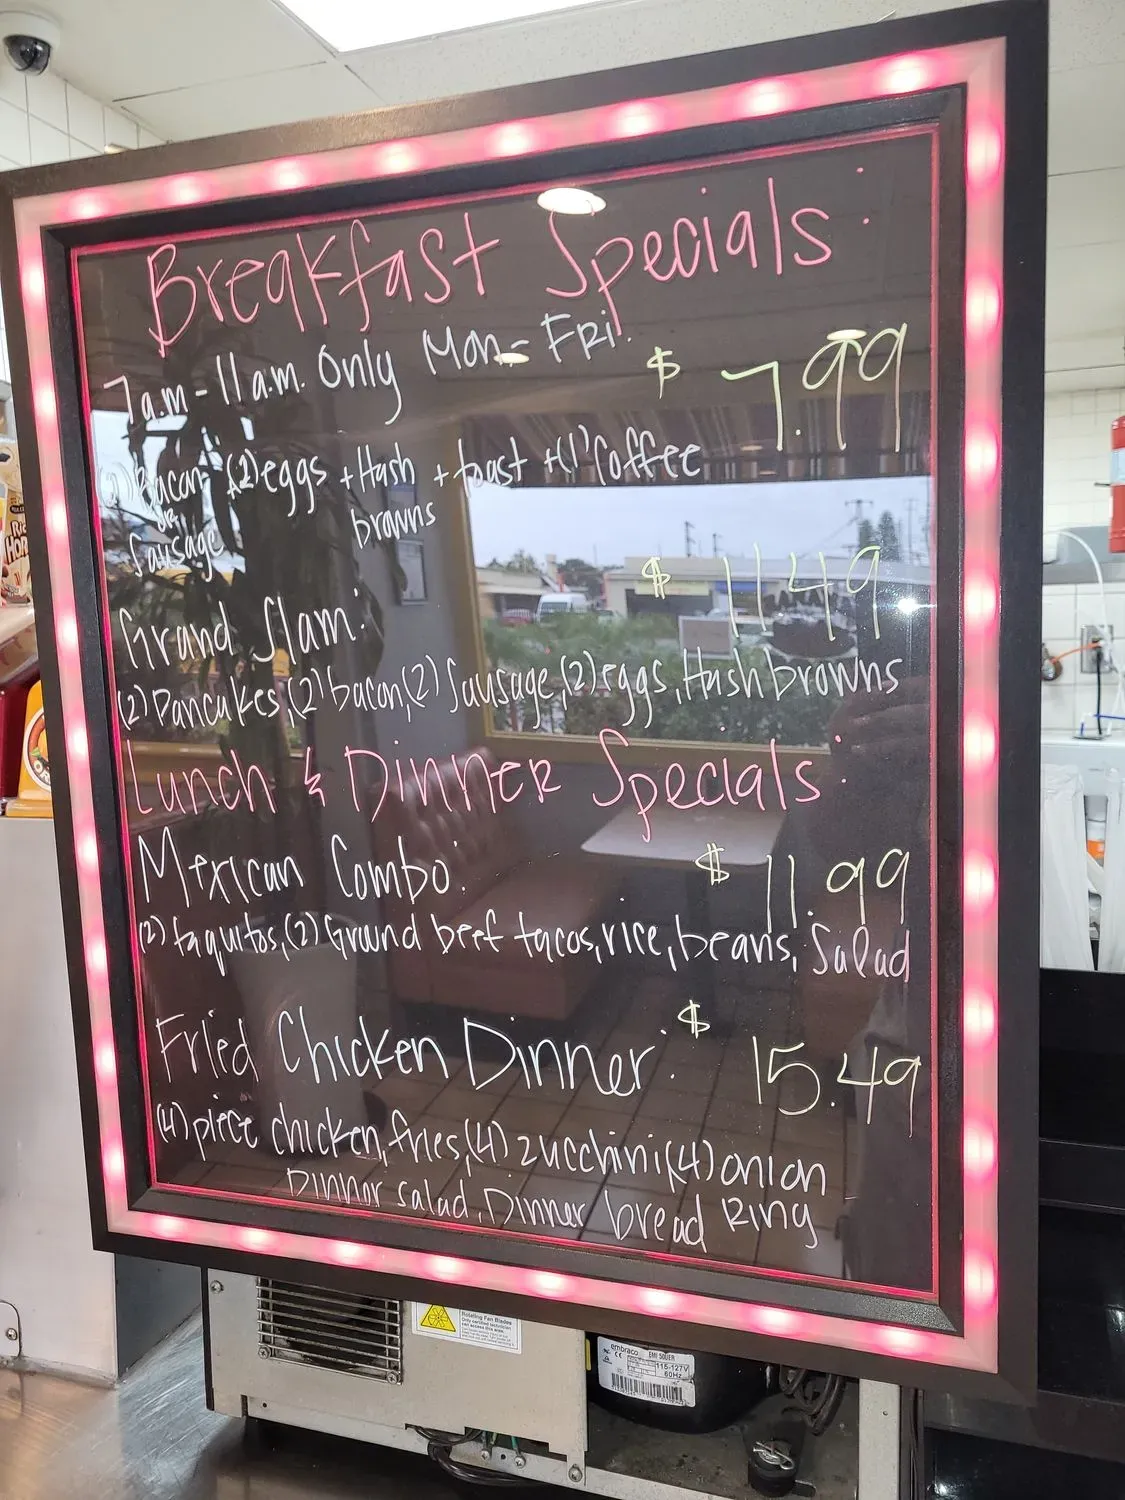 Breakfast Specials:
7a.m - 11a.m. Only Mon - Fri.
$ 7.99
(2) Bacon (2) eggs + Hash + toast + (1) Coffee
or
Sausage
browns
$ 11.49
Grand Slam:
(2) Pancakes, (2) bacon, (2) Sausage, (2) eggs, Hash browns
Lunch & Dinner Specials:
Mexican Combo: $ 11.99
(2) taquitos, (2) Ground beef tacos, rice, beans, Salad
Fried Chicken Dinner: $ 15.49
(4) piece chicken, fries, (4) zucchini (4) onion
Dinner salad, Dinner bread Ring
Rotating Fan Blades
Only certified technician
can access this area.
embraco EMI 50UER
115-127V
60Hz